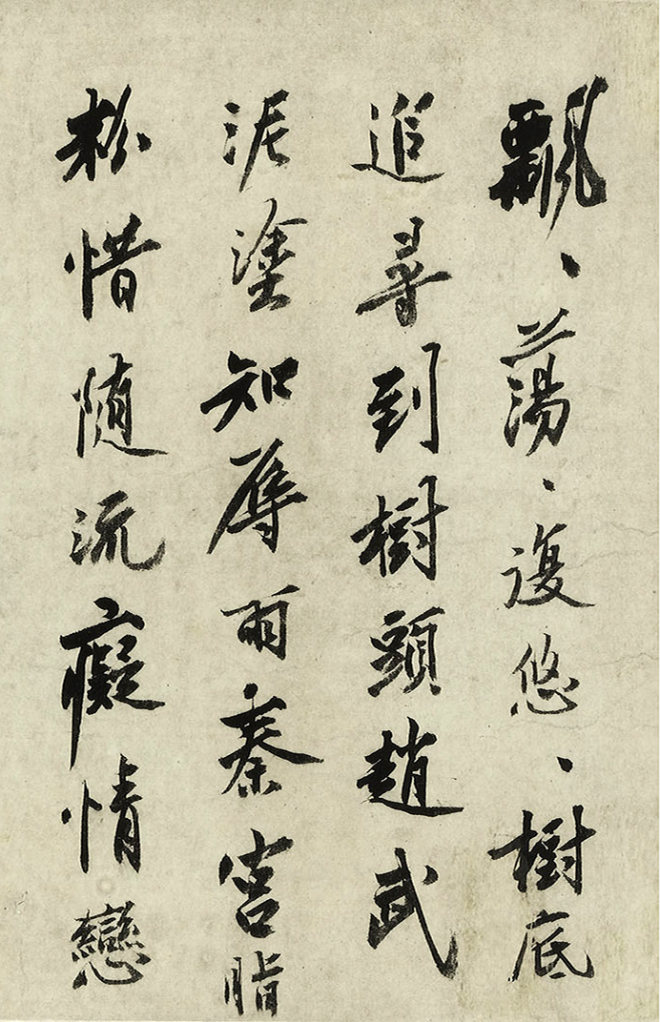 飄、蕩、復悠、樹底
追尋到樹頭趙武
泥塗知辱雨秦宮脂
粉惜隨流癡情戀